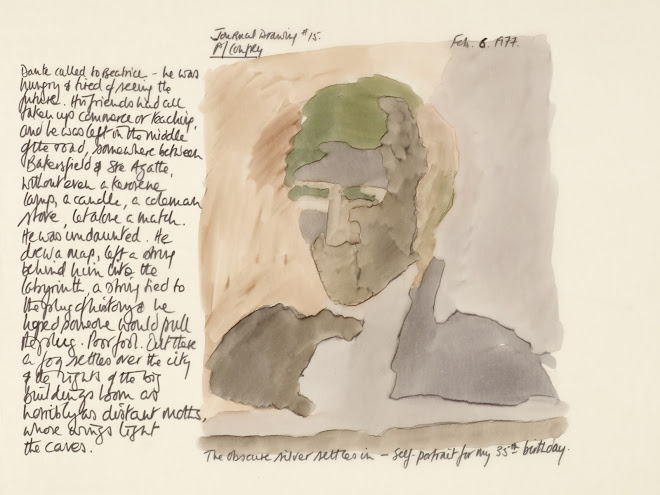 Journal Drawing #15.
P/Conley
Feb. 6. 1977.
Dante called to Beatrice – he was
hungry & tired of seeing the
future. His friends had all
taken up commerce or teaching,
and he was left in the middle
of the road, somewhere between
Bakersfield & Ste Agatte,
without even a kerosene
lamp, a candle, a coleman
stove, let alone a match.
He was undaunted. He
drew a map, left a string
behind him into the
labyrinth, a string tied to
the plug of history & he
hoped someone would pull
the plug. Poor fool. Out there
a fog settles over the city
& the lights of the big
buildings loom as
horribly as distant moths,
whose wings light
the caves.
The obscure silver settles in – self-portrait for my 35th birthday.